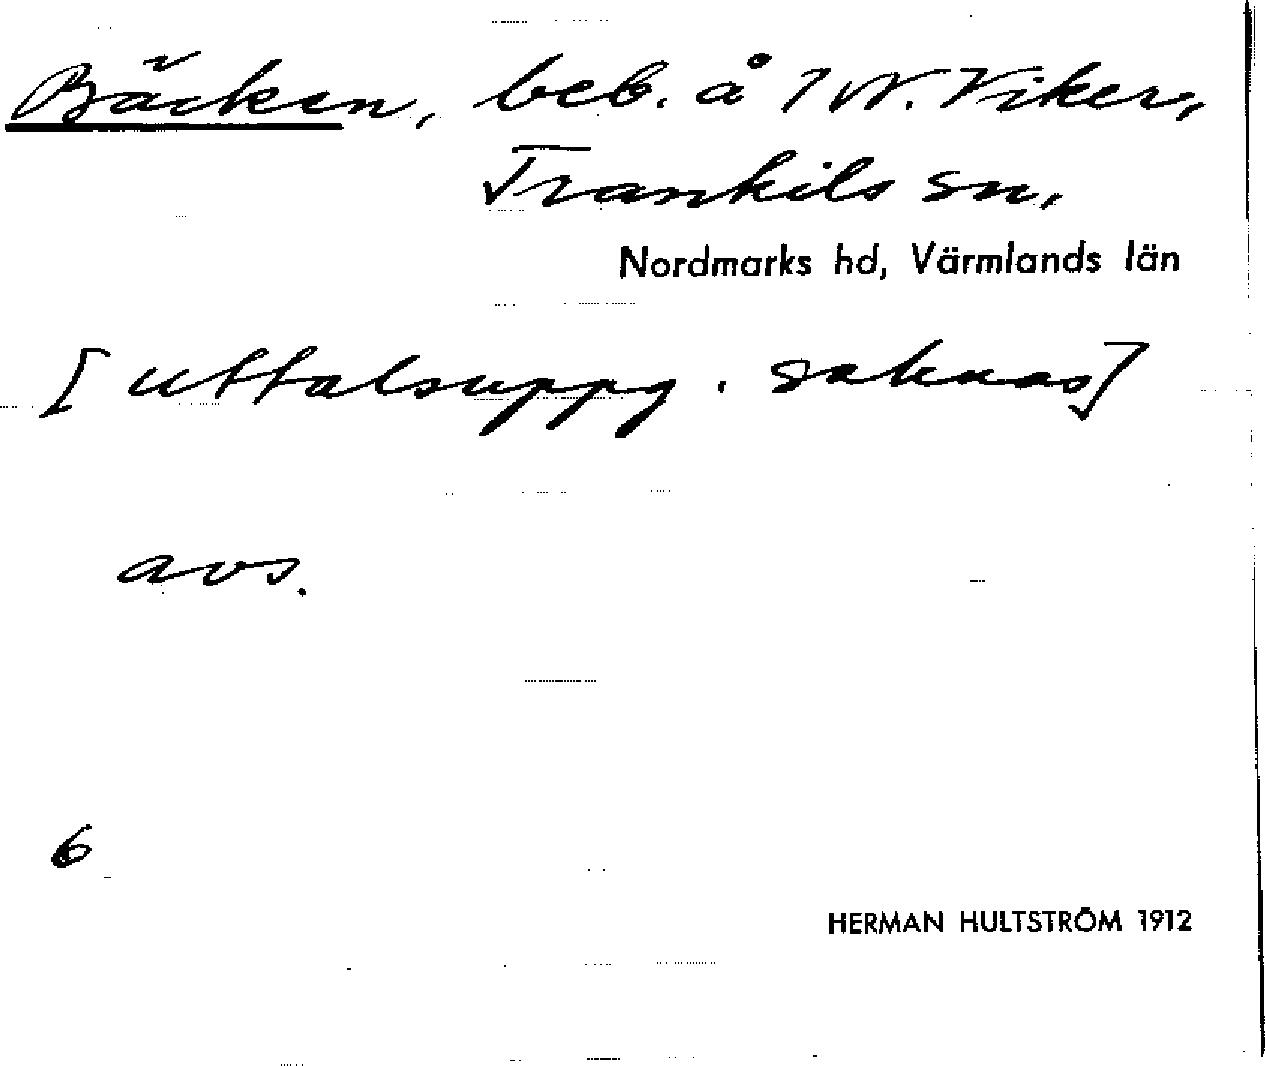 Bäcken, beb. å 1 N. Viker,
Trankils sn,
Nordmarks hd, Värmlands län
[uttalsuppg. saknas]
avs.
6
HERMAN HULTSTRÖM 1912